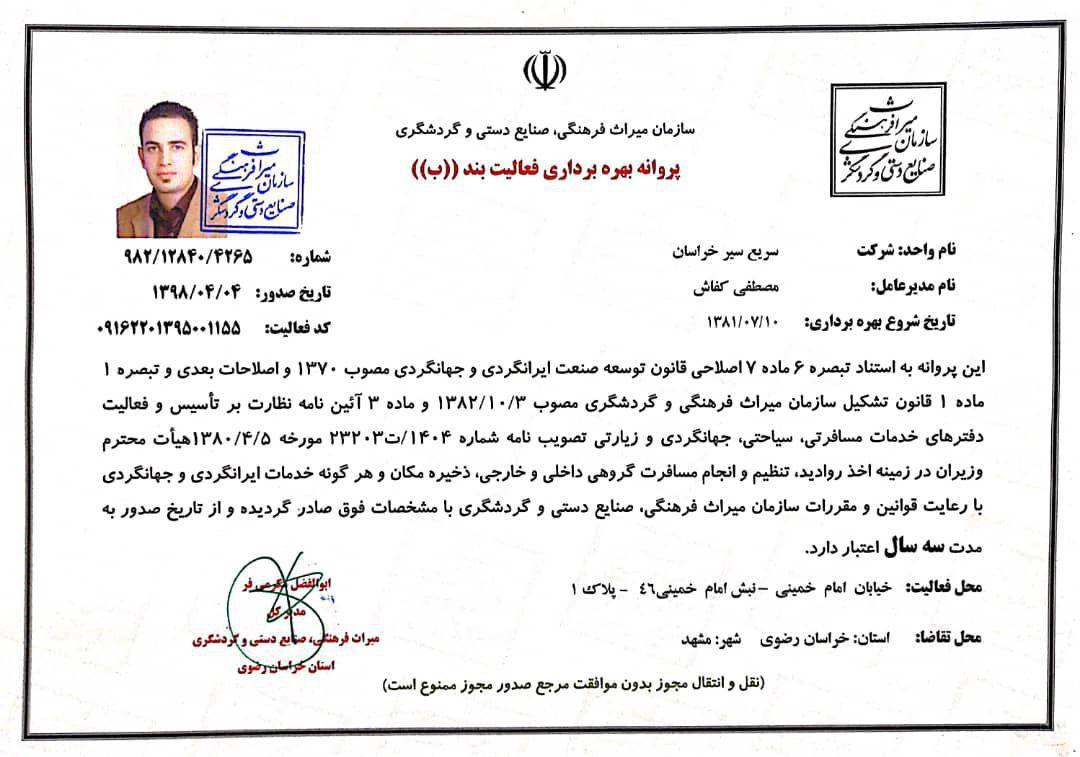 سازمان میراث فرهنگی، صنایع دستی و گردشگری
پروانه بهره برداری فعالیت بند ((ب))
سازمان میراث فرهنگی
صنایع دستی و گردشگری
سازمان میراث فرهنگی
صنایع دستی و گردشگری
نام واحد: شرکت سریع سیر خراسان
شماره: ۹۸۲/۱۲۸۴۰/۴۲۶۵
نام مدیرعامل: مصطفی کفاش
تاریخ صدور: ۱۳۹۸/۰۴/۰۴
تاریخ شروع بهره برداری: ۱۳۸۱/۰۷/۱۰
کد فعالیت: ۰۹۱۶۲۲۰۱۳۹۵۰۰۱۱۵۵
این پروانه به استناد تبصره ۶ ماده ۷ اصلاحی قانون توسعه صنعت ایرانگردی و جهانگردی مصوب ۱۳۷۰ و اصلاحات بعدی و تبصره ۱
ماده ۱ قانون تشکیل سازمان میراث فرهنگی و گردشگری مصوب ۱۳۸۲/۱۰/۳ و ماده ۳ آئین نامه نظارت بر تأسیس و فعالیت
دفترهای خدمات مسافرتی، سیاحتی، جهانگردی و زیارتی تصویب نامه شماره ۱۴۰۴/ت۲۳۲۰۳ مورخه ۱۳۸۰/۴/۵هیأت محترم
وزیران در زمینه اخذ روادید، تنظیم و انجام مسافرت گروهی داخلی و خارجی، ذخیره مکان و هر گونه خدمات ایرانگردی و جهانگردی
با رعایت قوانین و مقررات سازمان میراث فرهنگی، صنایع دستی و گردشگری با مشخصات فوق صادر گردیده و از تاریخ صدور به
مدت سه سال اعتبار دارد.
محل فعالیت: خیابان امام خمینی –نبش امام خمینی۴۶ - پلاک ۱
محل تقاضا: استان: خراسان رضوی شهر: مشهد
ابوالفضل مکرمی فر
مدیر کل
میراث فرهنگی، صنایع دستی و گردشگری
استان خراسان رضوی
(نقل و انتقال مجوز بدون موافقت مرجع صدور مجوز ممنوع است)